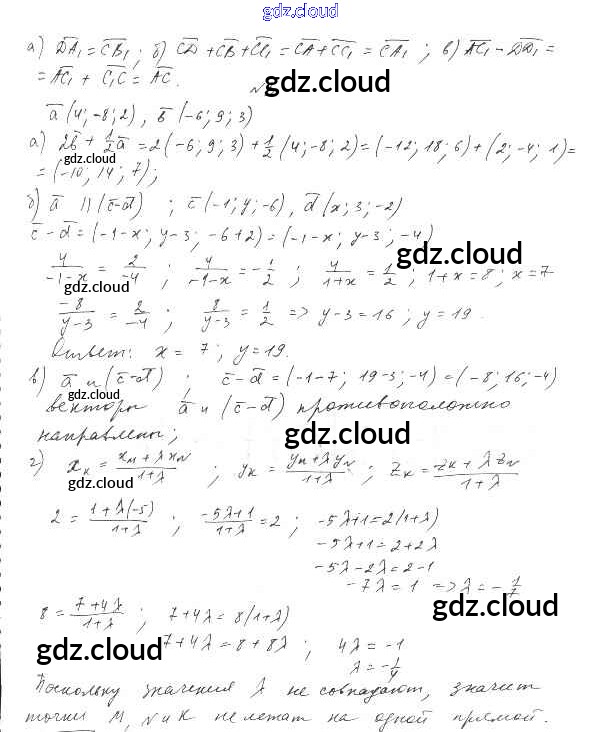 gdz.cloud
а) DA₁ = CB₁ ; б) CD + CB + CC₁ = CA + CC₁ = CA₁ ; в) AC₁ − DD₁ =
= AC₁ + C₁C = AC.
gdz.cloud
a (4; -8; 2), b (-6; 9; 3)
а) 2b + 1/2 a = 2(-6; 9; 3) + 1/2 (4; -8; 2) = (-12; 18; 6) + (2; -4; 1) =
gdz.cloud
= (-10; 14; 7);
б) a || (c-d) ; c (-1; y; -6), d (x; 3; -2)
c - d = (-1-x; y-3; -6+2) = (-1-x; y-3; -4)
gdz.cloud
4/(-1-x) = 2/(-4) ; 4/(-1-x) = -1/2 ; 4/(1+x) = 1/2 ; 1+x = 8 ; x = 7
gdz.cloud
-8/(y-3) = 2/(-4) ; 8/(y-3) = 1/2 => y-3 = 16 ; y = 19.
Ответ: x = 7; y = 19.
gdz.cloud
в) a и (c-d) ; c - d = (-1-7; 19-3; -4) = (-8; 16; -4)
векторы a и (c-d) противоположно
gdz.cloud
направлены;
г) x_K = (x_M + λx_N)/(1+λ) ; y_K = (y_M + λy_N)/(1+λ) ; z_K = (z_K + λz_N)/(1+λ)
gdz.cloud
2 = (1+λ(-5))/(1+λ) ; (-5λ+1)/(1+λ) = 2 ; -5λ+1 = 2(1+λ)
-5λ+1 = 2+2λ
-5λ-2λ = 2-1
-7λ = 1 => λ = -1/7
gdz.cloud
8 = (7+4λ)/(1+λ) ; 7+4λ = 8(1+λ)
7+4λ = 8+8λ ; 4λ = -1
gdz.cloud
λ = -1/4
Поскольку значения λ не совпадают, значит
точки M, N и K не лежат на одной прямой.
gdz.cloud